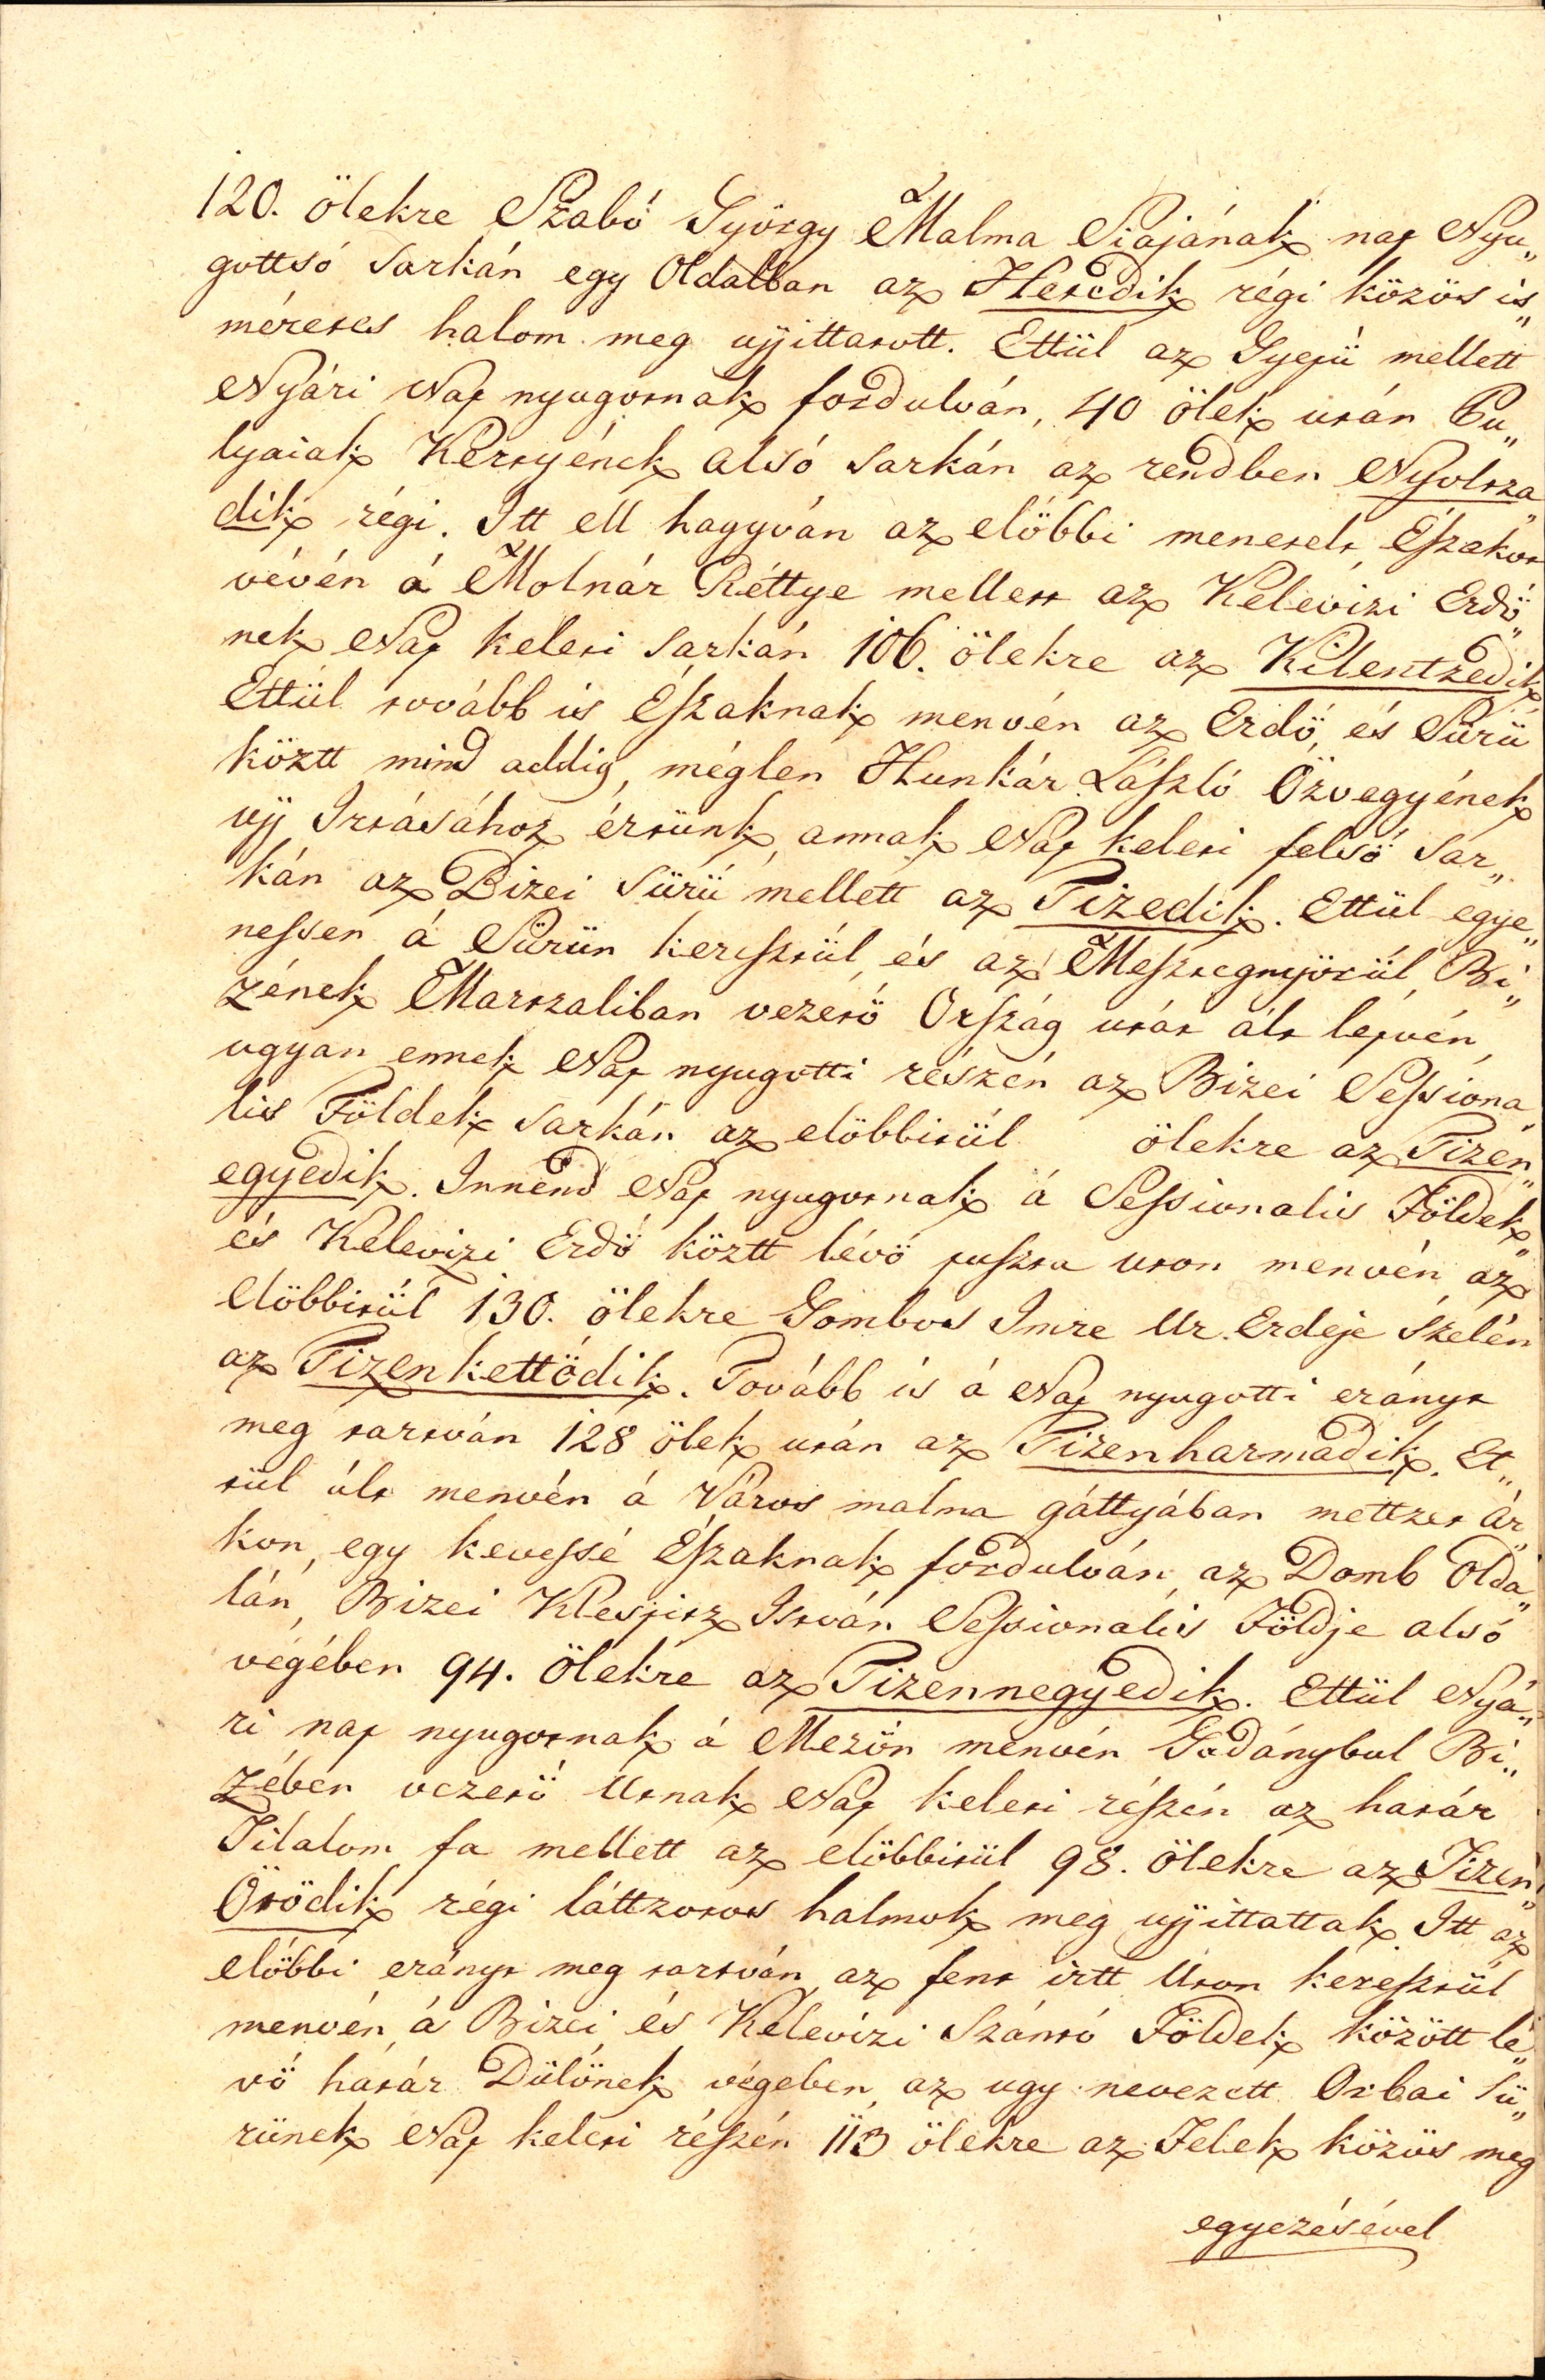 120. ölekre Szabó György Malma Piajának nap Nyu„
gottsó sarkán egy Oldalban az Hetedik régi közös is„
méretes halom meg ujjittatott. Ettül az Gyepü mellett
Nyári Nap nyugotnak fordulván, 40 ölek után Pu„
lyaiak Kertyének alsó sarkán az rendben Nyoltza„
dik régi. Itt ell hagyván az elöbbi menetelt, Éſzakot
vévén á Molnár Réttye mellett az Kelevizi Erdö„
nek Nap keleti sarkán 106. ölekre az Kilentzedik
Ettül tovább is Éſzaknak menvén az Erdö, és Sürü
köztt mind addig, méglen Hunkár Láſzló Özvegyének
ujj Irtásához értünk, annak Nap keleti felsö sar„
kán az Bizei Sürü mellett az Tizedik. Ettül egye„
neſsen á Sürün kereſztül, és az Meſztegnyörül, Bi„
zének Martzaliban vezetö Orſzág utát ált lépvén,
ugyan ennek Nap nyugotti részén az Bizei Seſsiona„
lis Földek sarkán az elöbbitül ölekre az Tizen„
egyedik. Innend Nap nyugotnak á Seſsionalis Földek,
és Kelevizi Erdö köztt lévö puſzta uton menvén az
elöbbitül 130. ölekre Gombos Imre Ur Erdeje szélén
az Tizenkettödik. Tovább is á Nap nyugotti erányt
meg tartván 128 ölek után az Tizenharmadik. Et„
tül ált menvén á Város malma gáttyában mettzet ár„
kon, egy keveſsé Éſzaknak fordulván az Domb olda„
lán, Bizei Klespitz István Seſsionális Földje alsó
végében 94. ölekre az Tizennegyedik. Ettül Nyá„
ri nap nyugotnak á Mezön menvén Gadánybul Bi„
zében vezetö Utnak Nap keleti réſzén az határ
Tilalom fa mellett az elöbbitül 98. ölekre az Tizen„
Ötödik régi láttzotos halmok meg ujjittattak. Itt az
elöbbi erányt meg tartván, az fent irtt Uton kereſztül
menvén á Bizei és Kelevizi Szántó Földek között lé„
vö határ Dülönek végeben, az ugy nevezett Orbai Sü„
rünek Nap keleti réſzén 113 ölekre az Felek közös meg
egyezésével